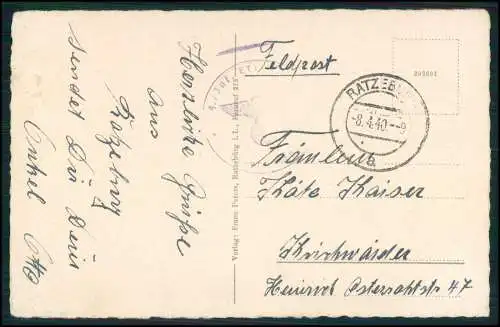 Herzliche Grüße
aus
Ratzeburg
sendet Dir Dein
Onkel Otto
Verlag: Franz Peters, Ratzeburg i. L.,
Feldpost
203001
RATZEBURG
-8.4.40.--9
a
Fräulein
Käte Kaiser
Kirchwärder
Heinrich Osterrahtstr 47